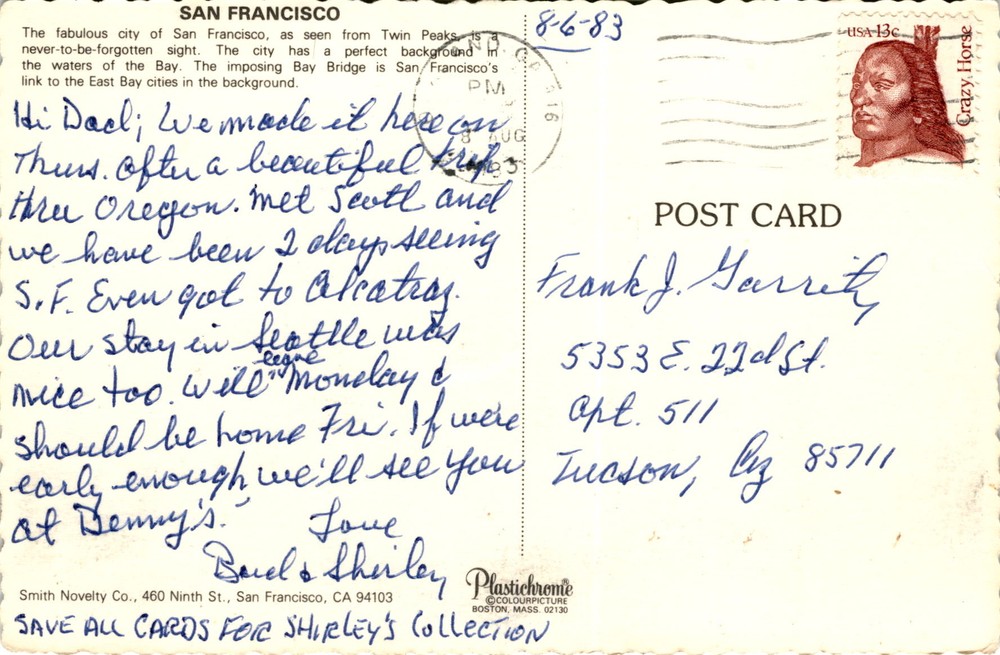 SAN FRANCISCO
The fabulous city of San Francisco, as seen from Twin Peaks, is a
never-to-be-forgotten sight. The city has a perfect background in
the waters of the Bay. The imposing Bay Bridge is San Francisco's
link to the East Bay cities in the background.
8-6-83
PM
8 AUG
USA 13c
Crazy Horse
Hi Dad; We made it here on
Thurs. after a beautiful trip
thru Oregon. Met Scott and
we have been 2 days seeing
S.F. Even got to Alcatraz.
Our stay in Seattle was
nice too. Will leave Monday &
should be home Fri. If were
early enough we'll see you
at Denny's."
Love
Bud & Shirley
POST CARD
Frank J. Garrity
5353 E. 22d St.
Apt. 511
Tucson, Az 85711
Smith Novelty Co., 460 Ninth St., San Francisco, CA 94103
Plastichrome®
©COLOURPICTURE
BOSTON, MASS. 02130
SAVE ALL CARDS FOR SHIRLEY'S COLLECTION